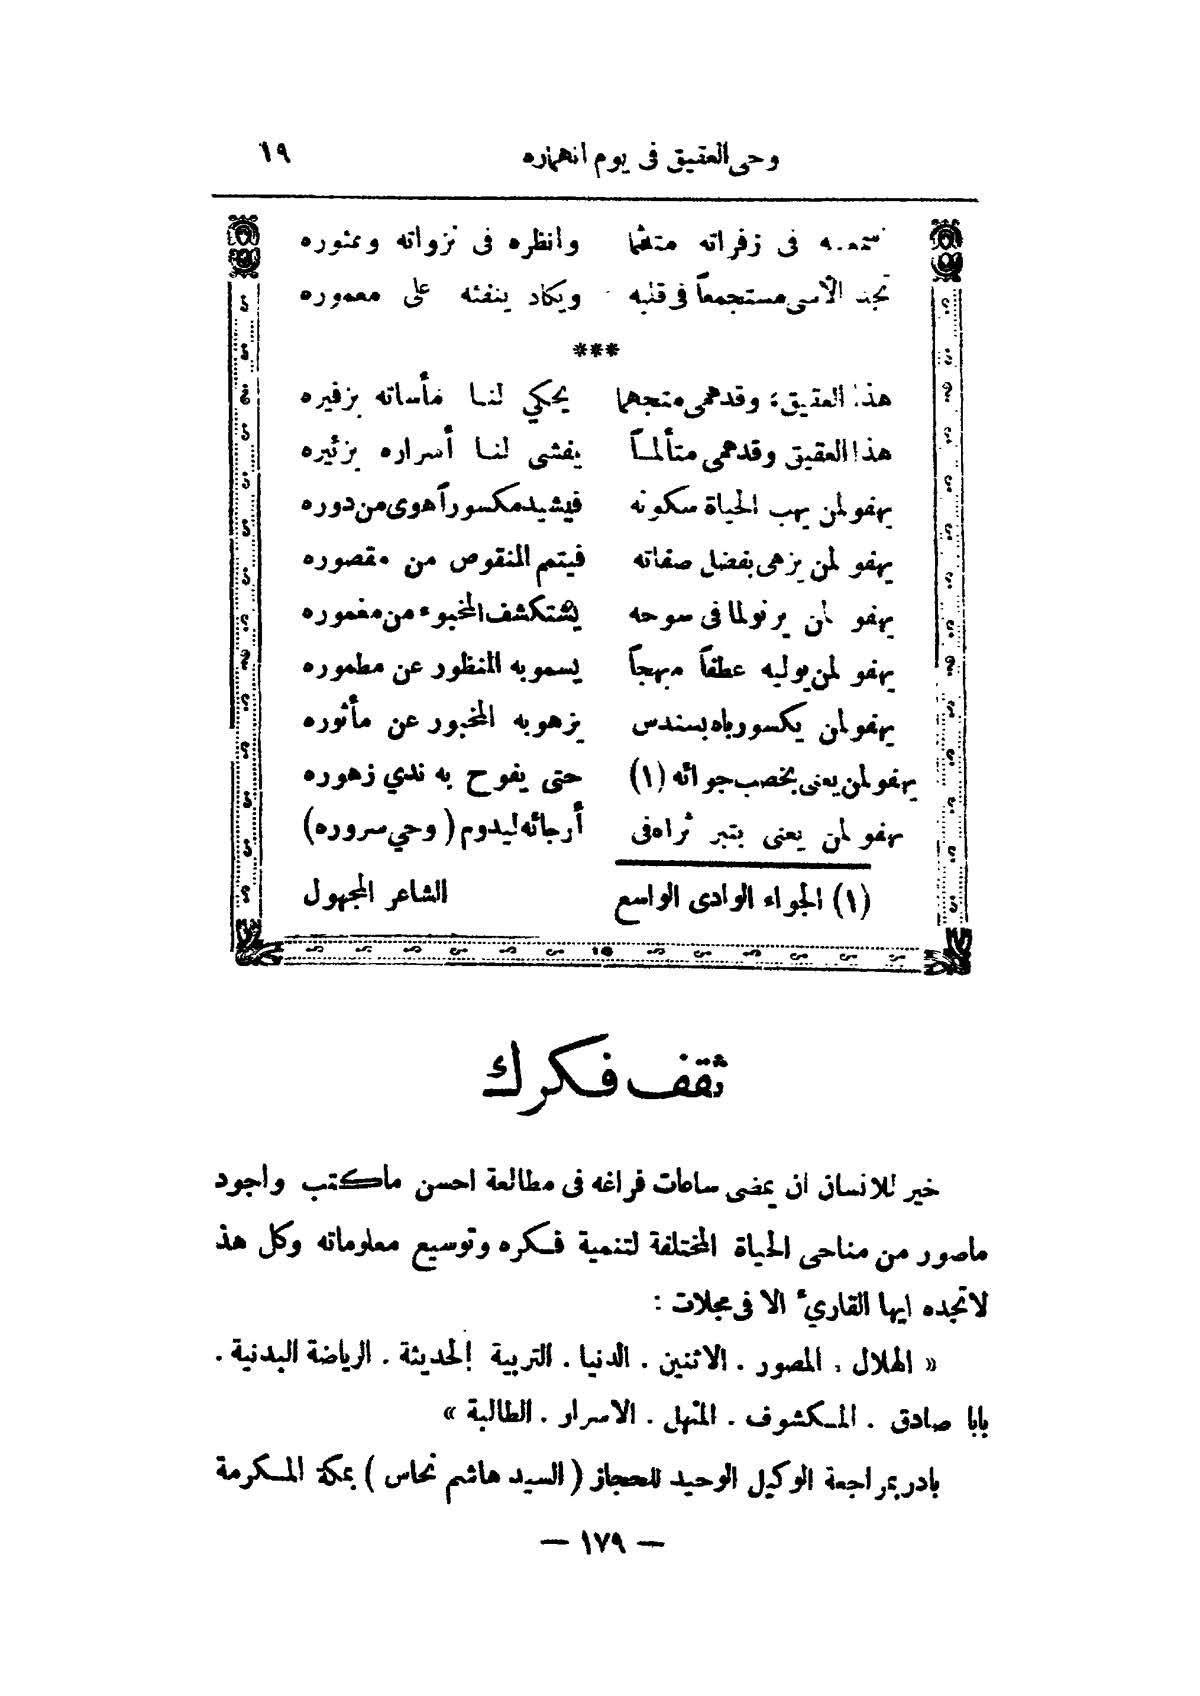 وحى العقيق فى يوم انهماره ١٩
فى زفراته وانظره فى نزواته وبمثوره
تجد الأسى مستجمعاً فى قلبه ويكاد ينفثه على معموره
***
هذا العقيق؛ وقد همى متجهما يحكي لنا مأساته بزفيره
هذا العقيق وقد همى متألماً يفشى لنا أسراره بزئيره
يهفو لمن يهب الحياة سكونه فيشيد مكسوراً هوى من دوره
يهفو لمن يزهى بفضل صفاته فيتم المنقوص من مقصوره
يهفو لمن يرنو لما فى سوحه يشتكشف المخبوء من مغموره
يهفو لمن يوليه عطفاً مبهجاً يسمو به المنظور عن مطموره
يهفو لمن يكسو رباه بسندس يزهو به المخبور عن مأثوره
يهفو لمن يعنى بخصب جوائه (١) حتى يفوح به ندي زهوره
يهفو لمن يعنى بتبر ثراه فى أرجائه ليدوم ( وحي سروره)
(١) الجواء الوادى الواسع الشاعر المجهول
ثقف فكرك
خير للانسان ان يمضى ساعات فراغه فى مطالعة احسن ماكتب واجود
ماصور من مناحى الحياة المختلفة لتنمية فكره وتوسيع معلوماته وكل هذ
لاتجده ايها القاريء الا فى مجلات :
« الهلال . المصور . الاثنين . الدنيا . التربية الحديثة . الرياضة البدنية .
بابا صادق . المكشوف . المنهل . الاسرار . الطالبة »
بادر بمراجعة الوكيل الوحيد للحجاز ( السيد هاشم نحاس ) بمكة المكرمة
— ١٧٩ —